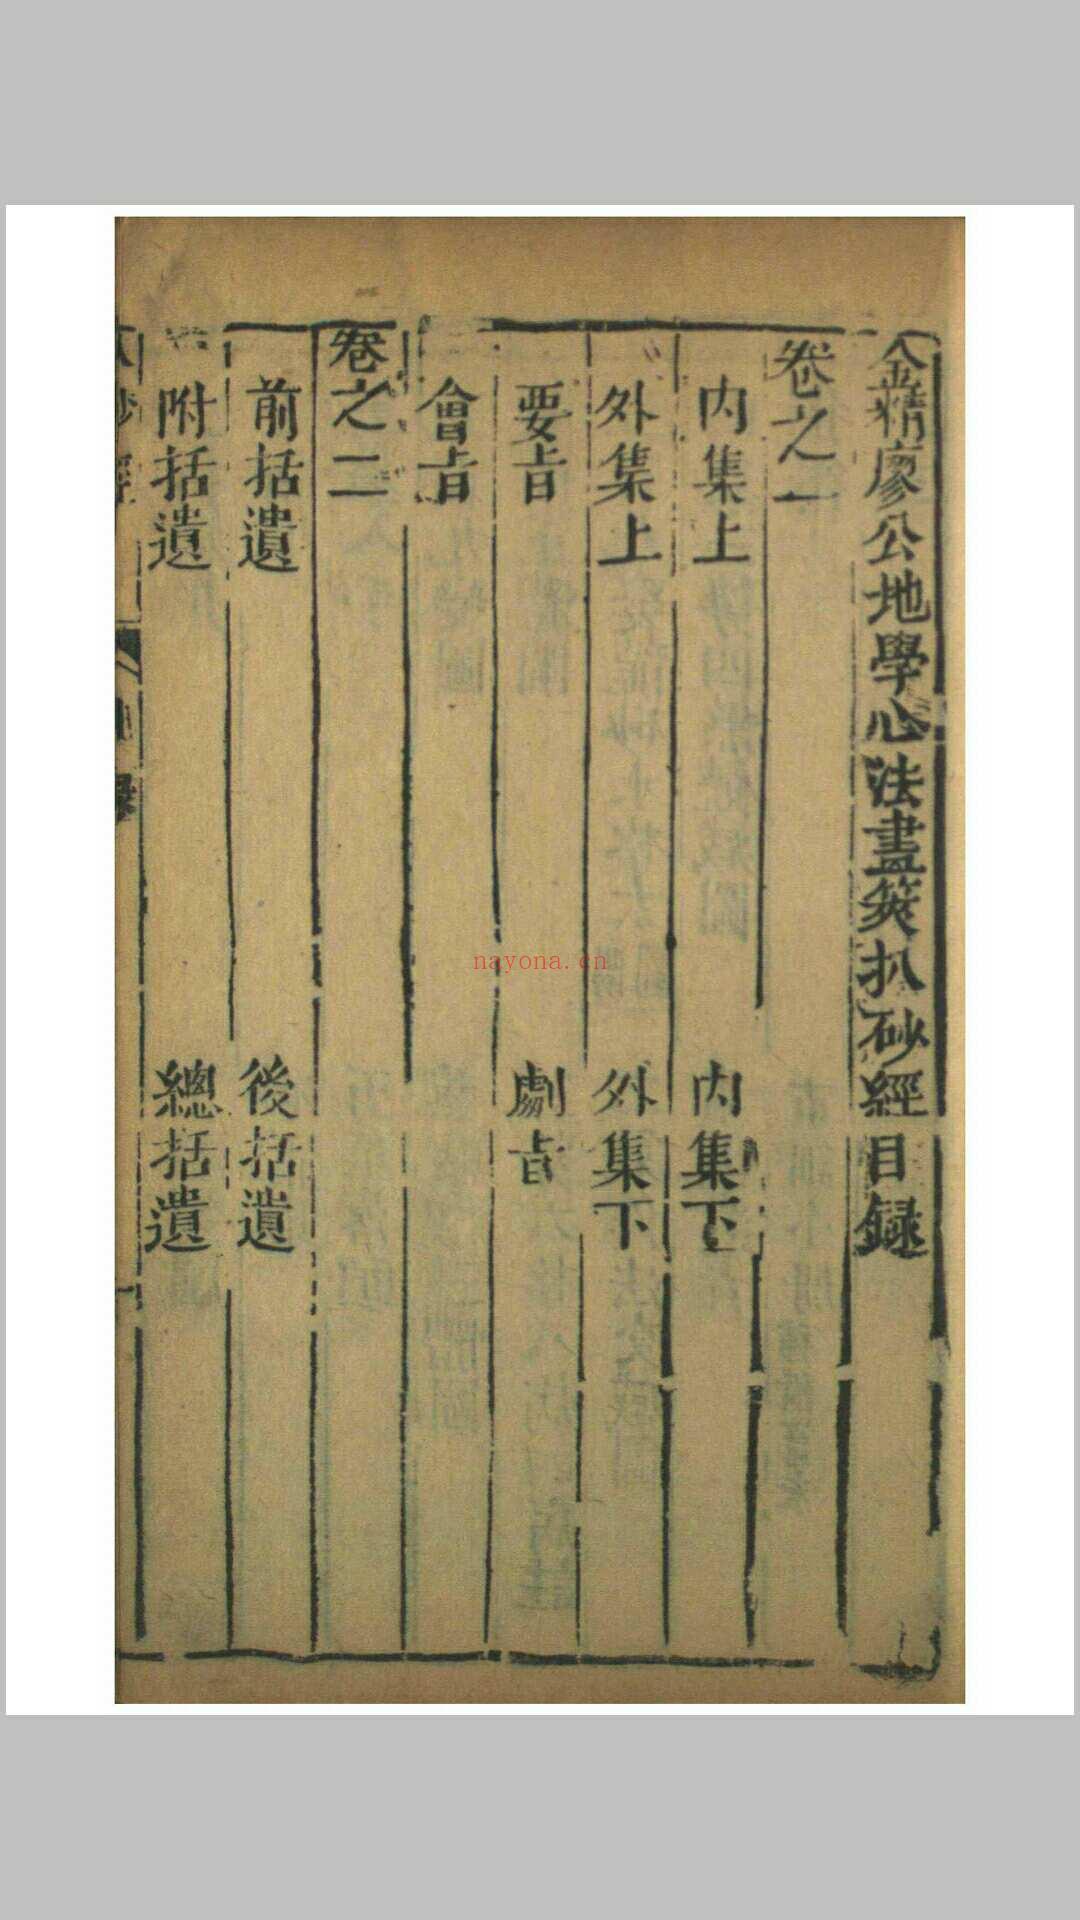 金精廖公地學心法畫筴扒砂經目録
卷之一
内集上 内集下
外集上 外集下
要旨 劇旨
會旨
卷之二
前括遺 後括遺
附括遺 總括遺
nayona.cn